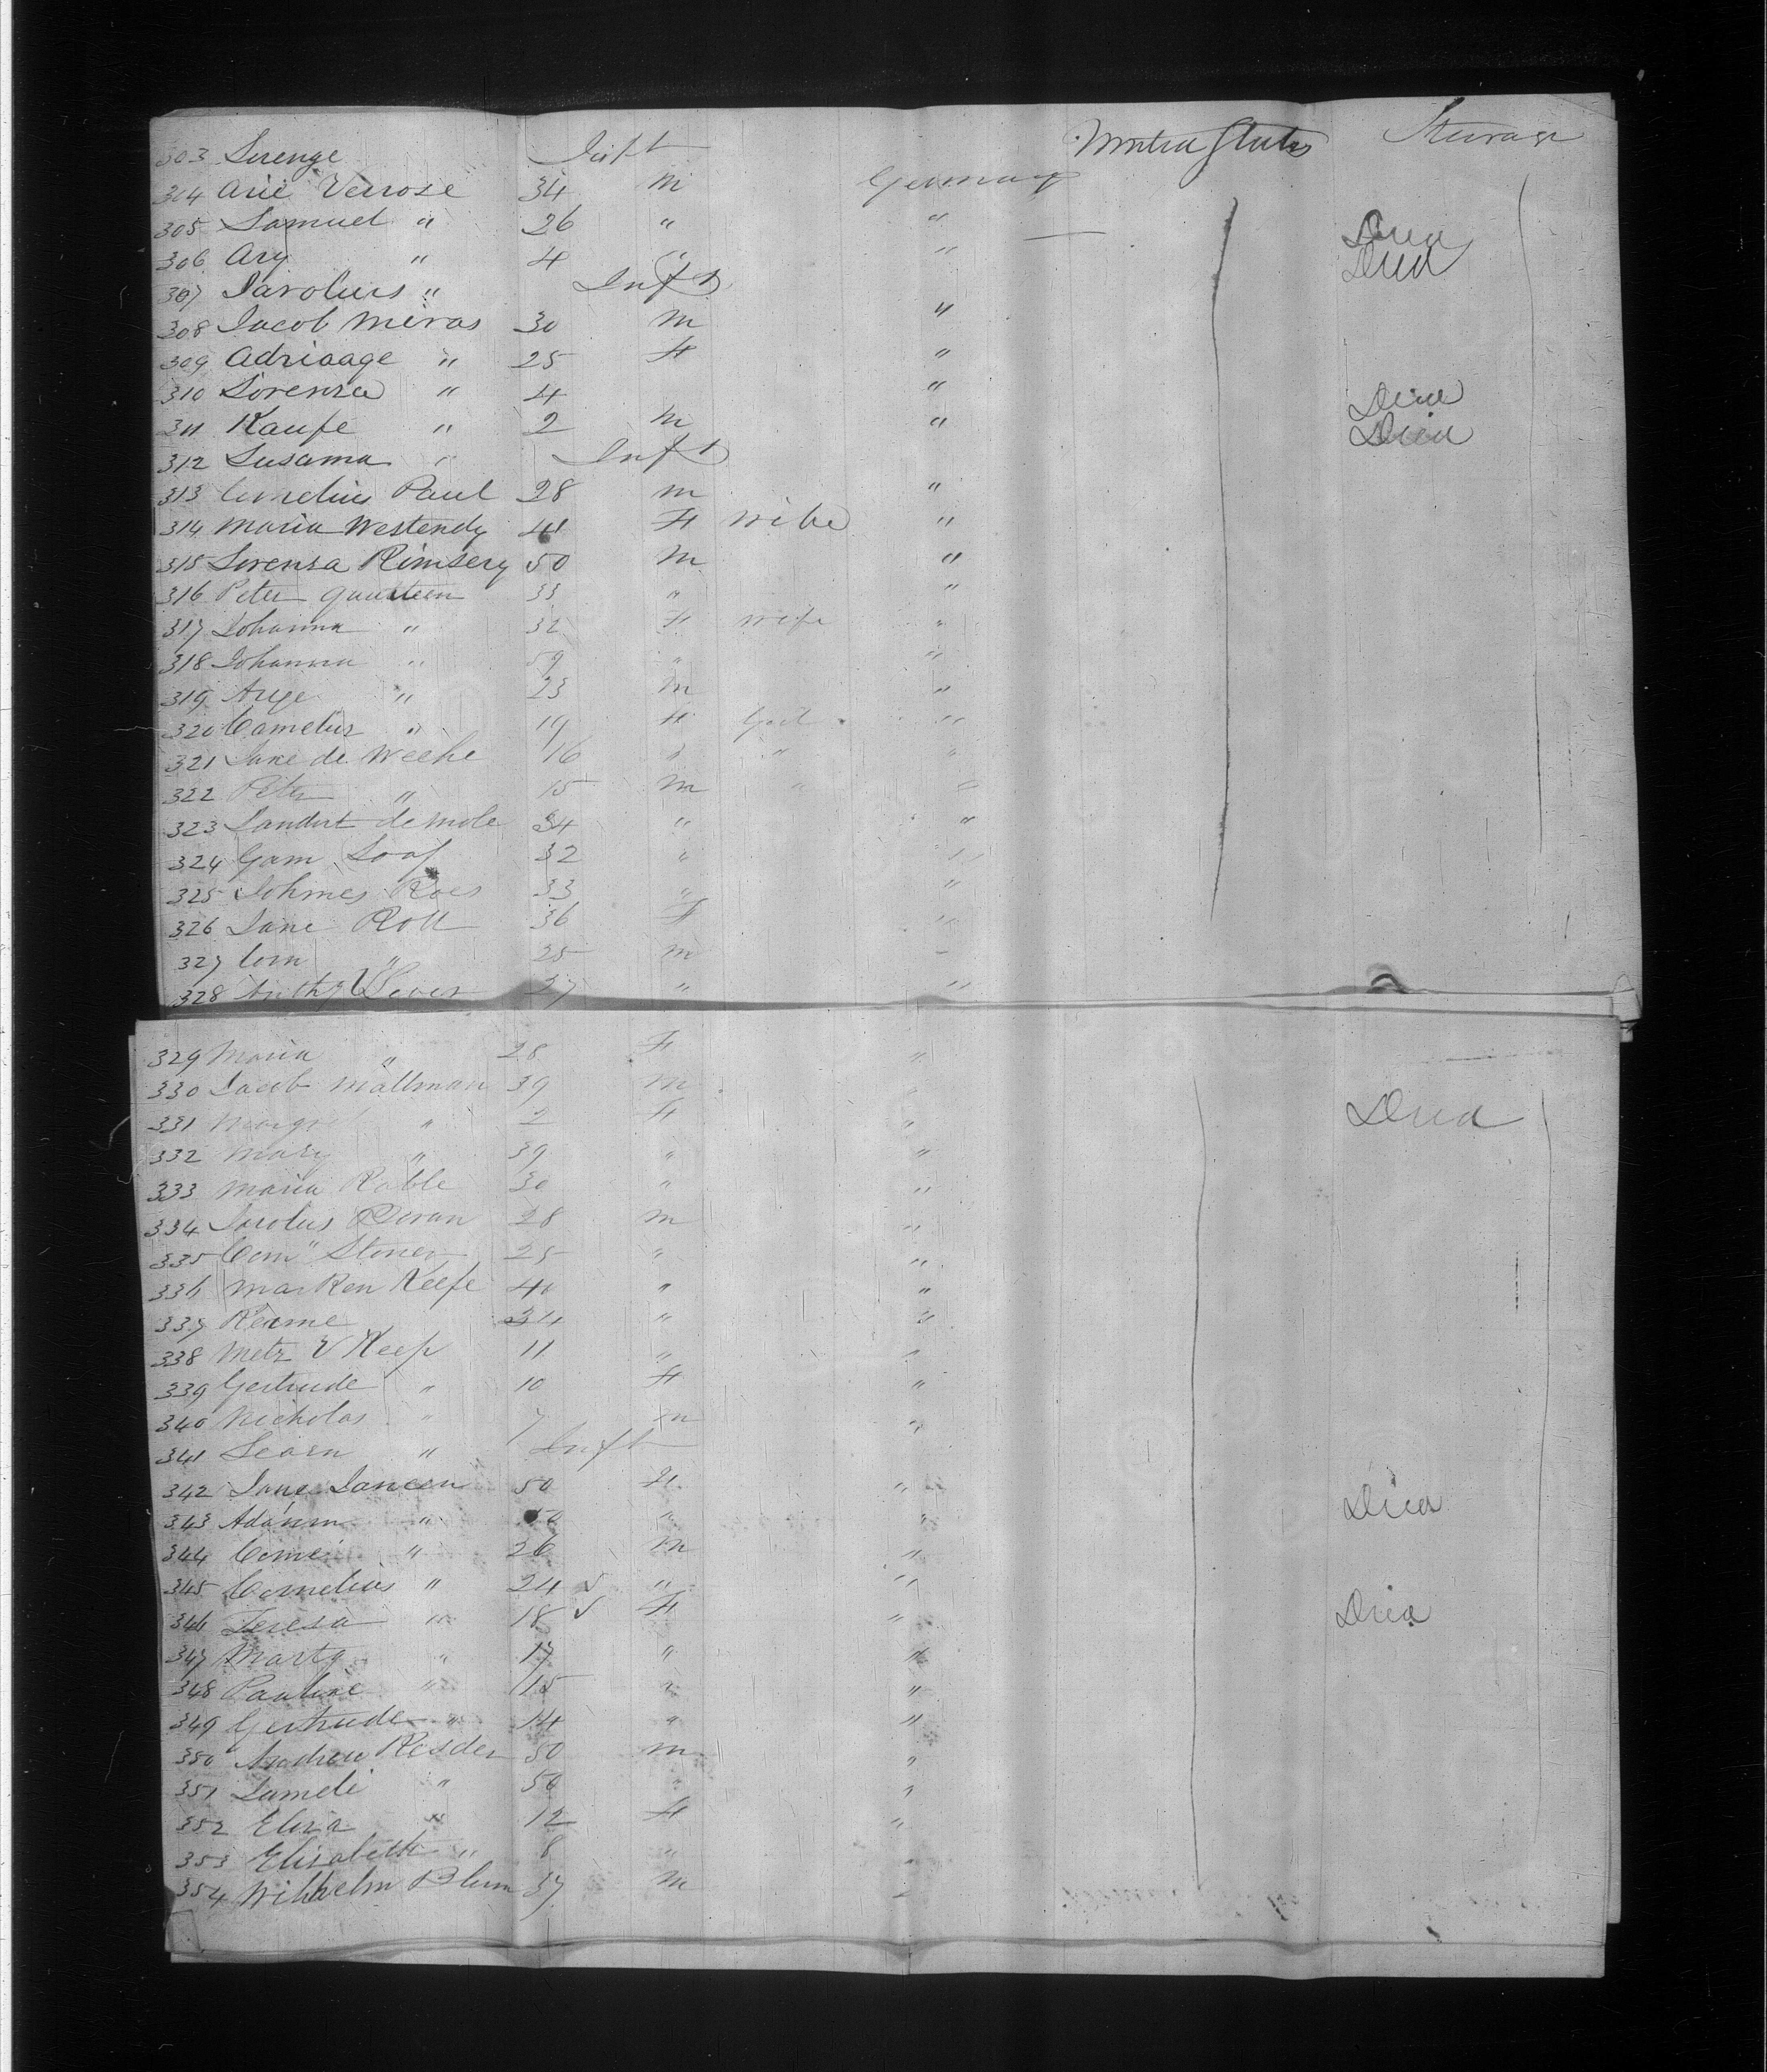 303 Serenge Inft United States Steerage
304 Arie Verrose 34 m Germany
305 Samuel " 26 " " Died
306 Ary " 4 " " Died
307 Jarolus " Inft
308 Jacob Meras 30 m "
309 Adriaage " 25 F "
310 Lorenza " 4 " Died
311 Kaufe " 2 m " Died
312 Susama " Inft
313 Cornelius Paul 28 m "
314 Maria Westendy F wife "
315 Lorenza Rimsery 50 m "
316 Peter 33 " "
317 Johanna " 32 F wife "
318 Johanna " 59 " "
319 Auge " 23 m "
320 Cornelius " 19 F "
321 Jane de Weehe 16 " " "
322 Peter " 15 m " "
323 Landert de Mole 34 " "
324 Gam Loof 32 " "
325 Johmes Roes 33 " "
326 Jane Roll 36 F "
327 Corn " 25 m "
328 Anthy V 27 " "
329 Maria " 28 F "
330 Jacob Mallman 39 m "
331 " 2 F " Died
332 Mary " 39 " "
333 Maria Rable 30 " "
334 Jarolus 28 m "
335 Corn" Stoney 25 " "
336 Marken Keefe 40 " "
337 Reame 34 " "
338 Metz V Keef 11 " "
339 Gertrude " 10 F "
340 Nicholas " 7 m "
341 Learn " Inft
342 Jane Janeen 50 F "
343 Adanm " " " Died
344 Corne " 26 m "
345 Cornelius " 24 " "
346 Teresa " 18 F " Died
347 Marty " 17 " "
348 Pauline " 15 " "
349 Gertrude " 14 " "
350 Andrew Resder 50 m "
351 Lamele " 50 " "
352 Eliza " 12 F "
353 Elisabeth " 8 " "
354 Wilhelm Blum 37 m "